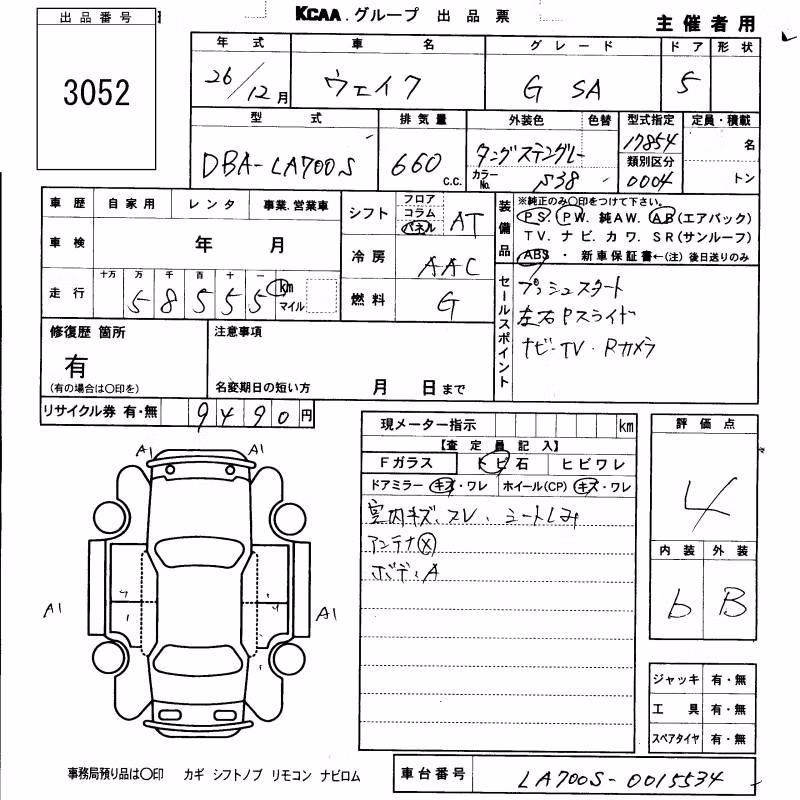 出品番号
3052
KCAA.グループ 出品票
主催者用
年式 車名 グレード ドア 形状
26/12月 ウェイク G SA 5
型式 排気量 外装色 色替 型式指定 定員・積載
DBA-LA700S 660 C.C. タングステングレー 17854 名
カラーNo. S38 類別区分 0004 トン
車歴 自家用 レンタ 事業.営業車
シフト フロア コラム パネル AT
装備品 ※純正のみ〇印をつけて下さい。
PS. PW. 純AW. AB(エアバック)
TV. ナビ. カワ. SR(サンルーフ)
ABS ・ 新車保証書←(注) 後日送りのみ
車検 年 月
冷房 AAC
走行 十万 万 千 百 十 一
58555 km マイル
燃料 G
セールスポイント
プッシュスタート
左右Pスライド
ナビ・TV・Rカメラ
修復歴 箇所
有
(有の場合は〇印を)
注意事項
名変期日の短い方 月 日まで
リサイクル券 有・無 9490円
現メーター指示 km
【査定員記入】
Fガラス トビ石 ヒビワレ
ドアミラー キズ・ワレ ホイール(CP) キズ・ワレ
室内キズ、スレ、シートしみ
アンテナⓧ
ボディA
評価点
4
内装 外装
b B
A1 A1
A1 A1
ジャッキ 有・無
工具 有・無
スペアタイヤ 有・無
事務局預り品は〇印 カギ シフトノブ リモコン ナビロム
車台番号 LA700S-0015534